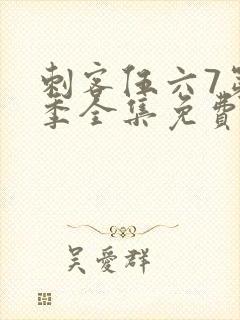 刺客伍六7第
季全集免費
吴愛群